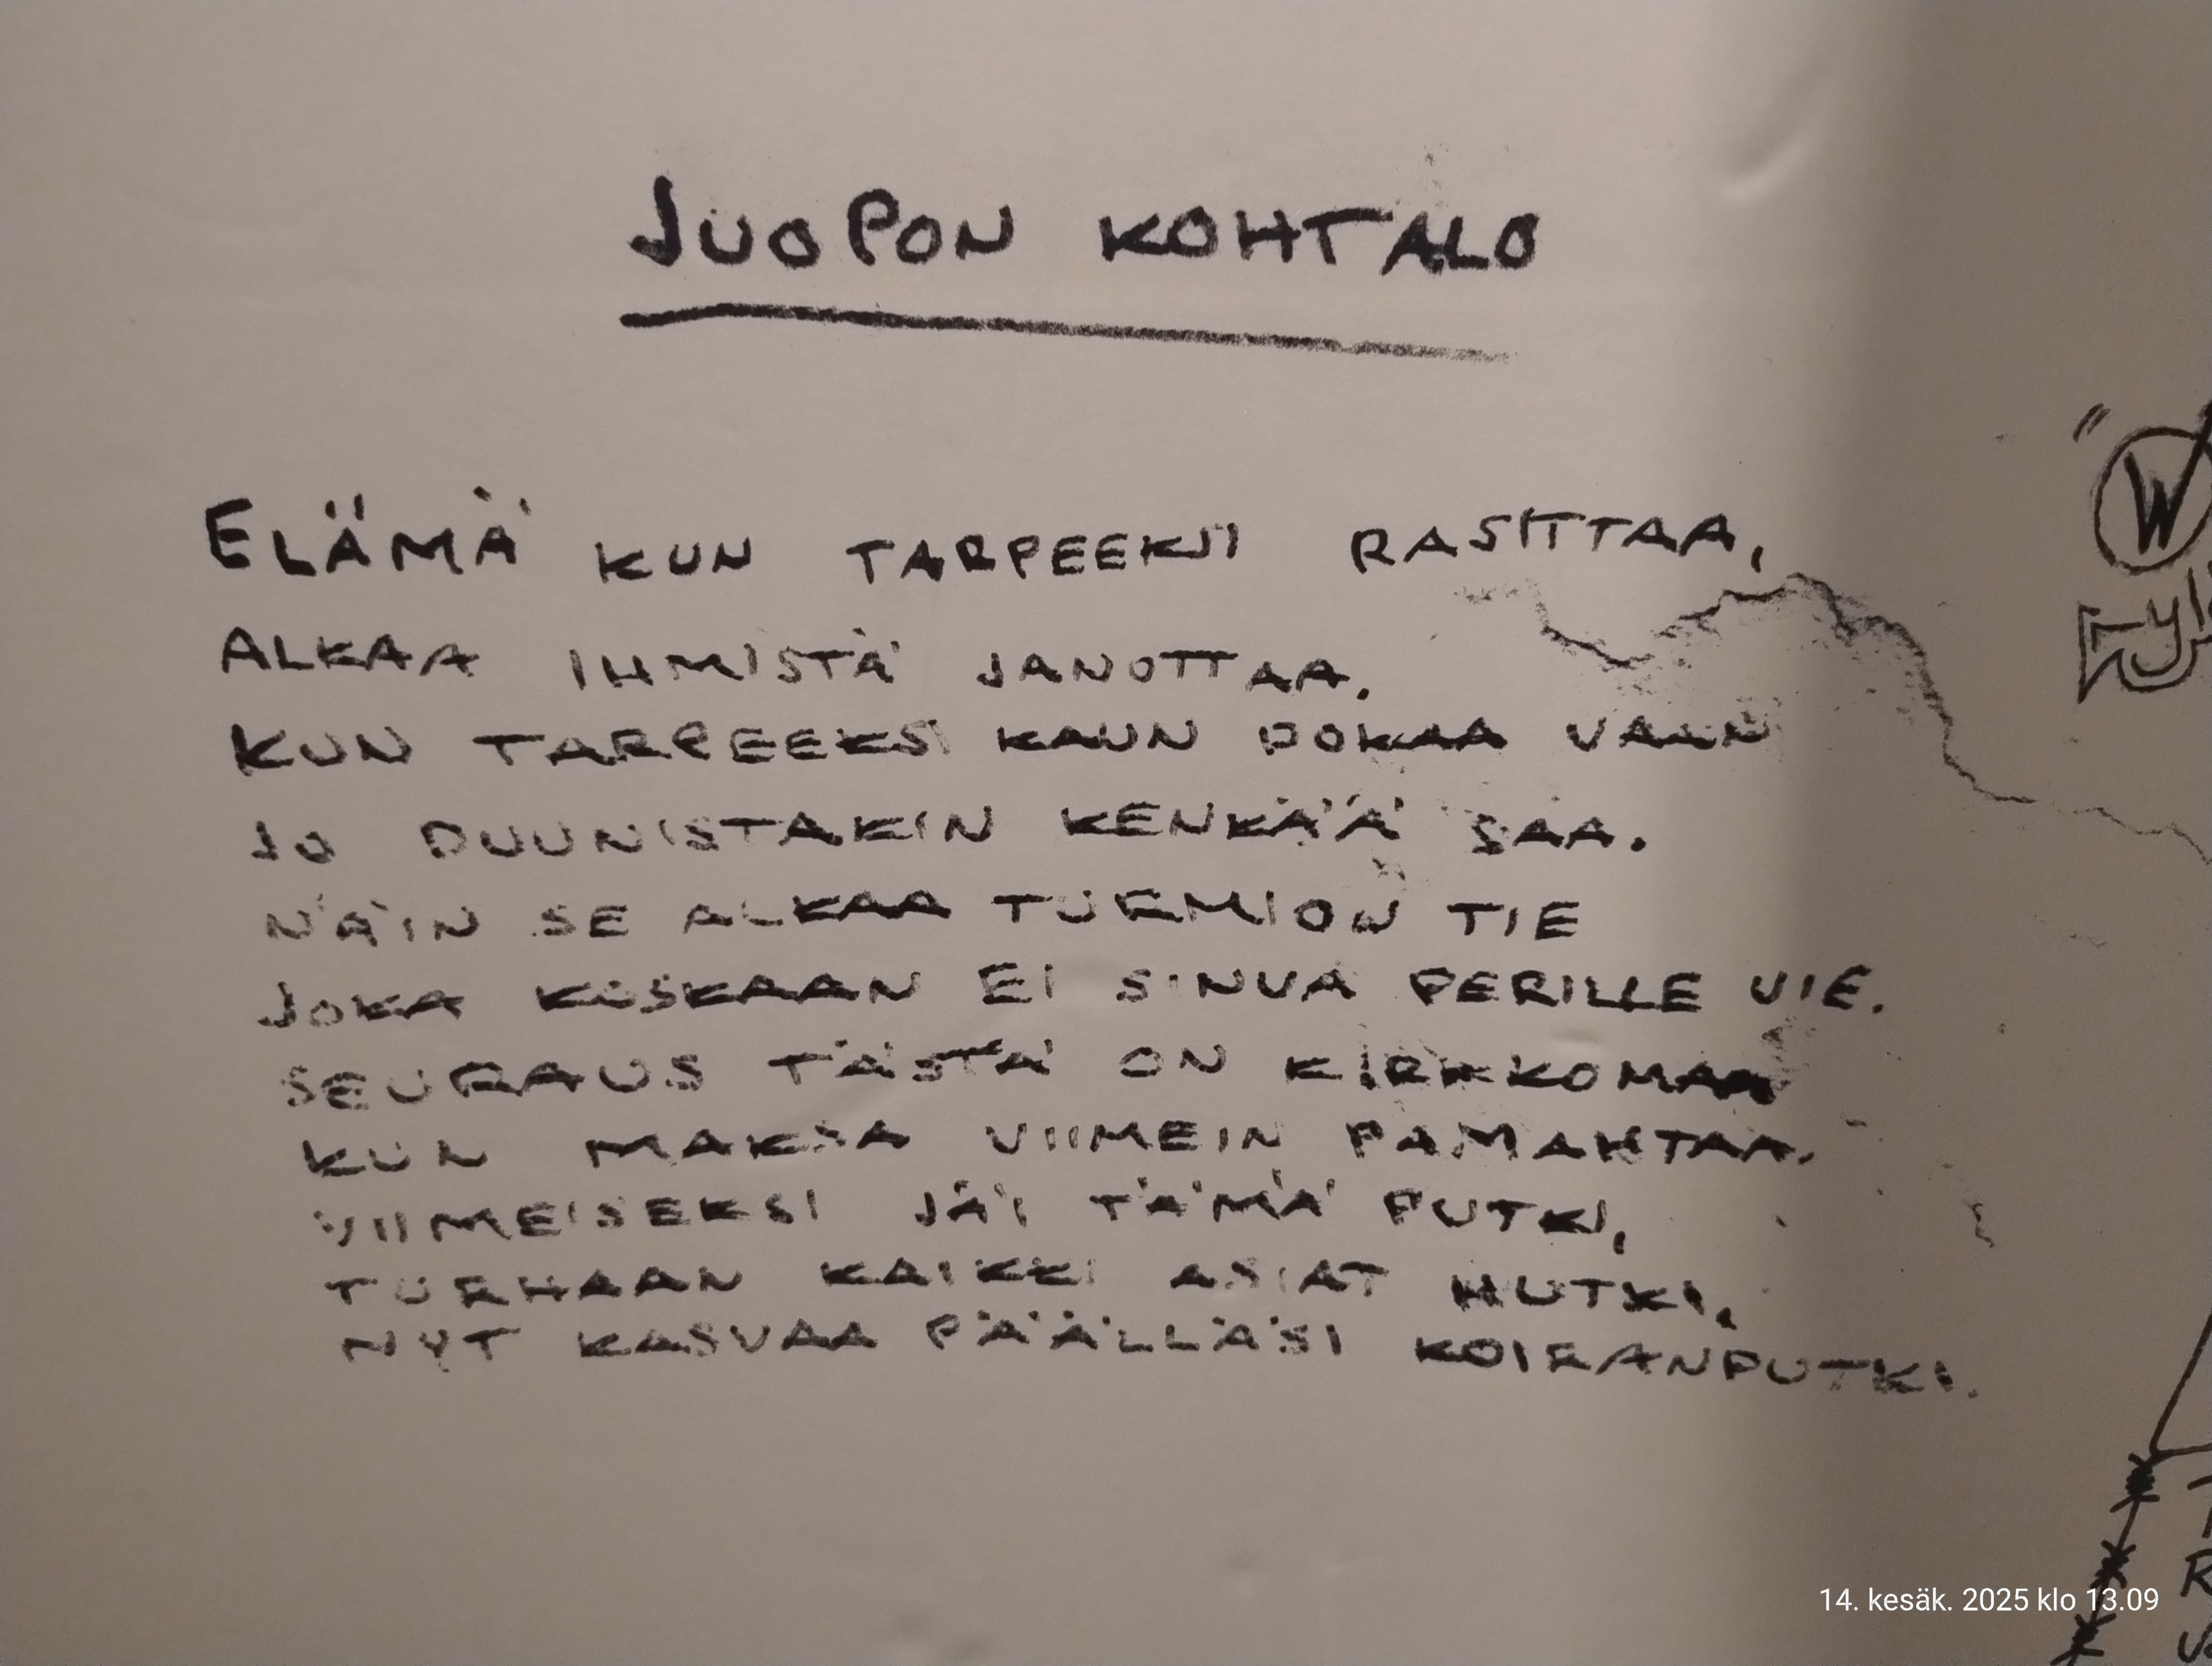 JUOPON KOHTALO
ELÄMÄ KUN TARPEEKSI RASITTAA,
ALKAA IHMISTÄ JANOTTAA.
KUN TARPEEKSI KAUN DOKAA VAAN
JO DUUNISTAKIN KENKÄÄ SAA.
NÄIN SE ALKAA TURMION TIE
JOKA KUSKAAN EI SINUA PERILLE VIE.
SEURAUS TÄSTÄ ON KIRKKOMAA
KUN MAKSA VIIMEIN PAMAHTAA.
VIIMEISEKSI JÄI TÄMÄ PUTKI,
TURHAAN KAIKKI ASIAT HUTKI,
NYT KASVAA PÄÄLLÄSI KOIRANPUTKI.
W
14. kesäk. 2025 klo 13.09